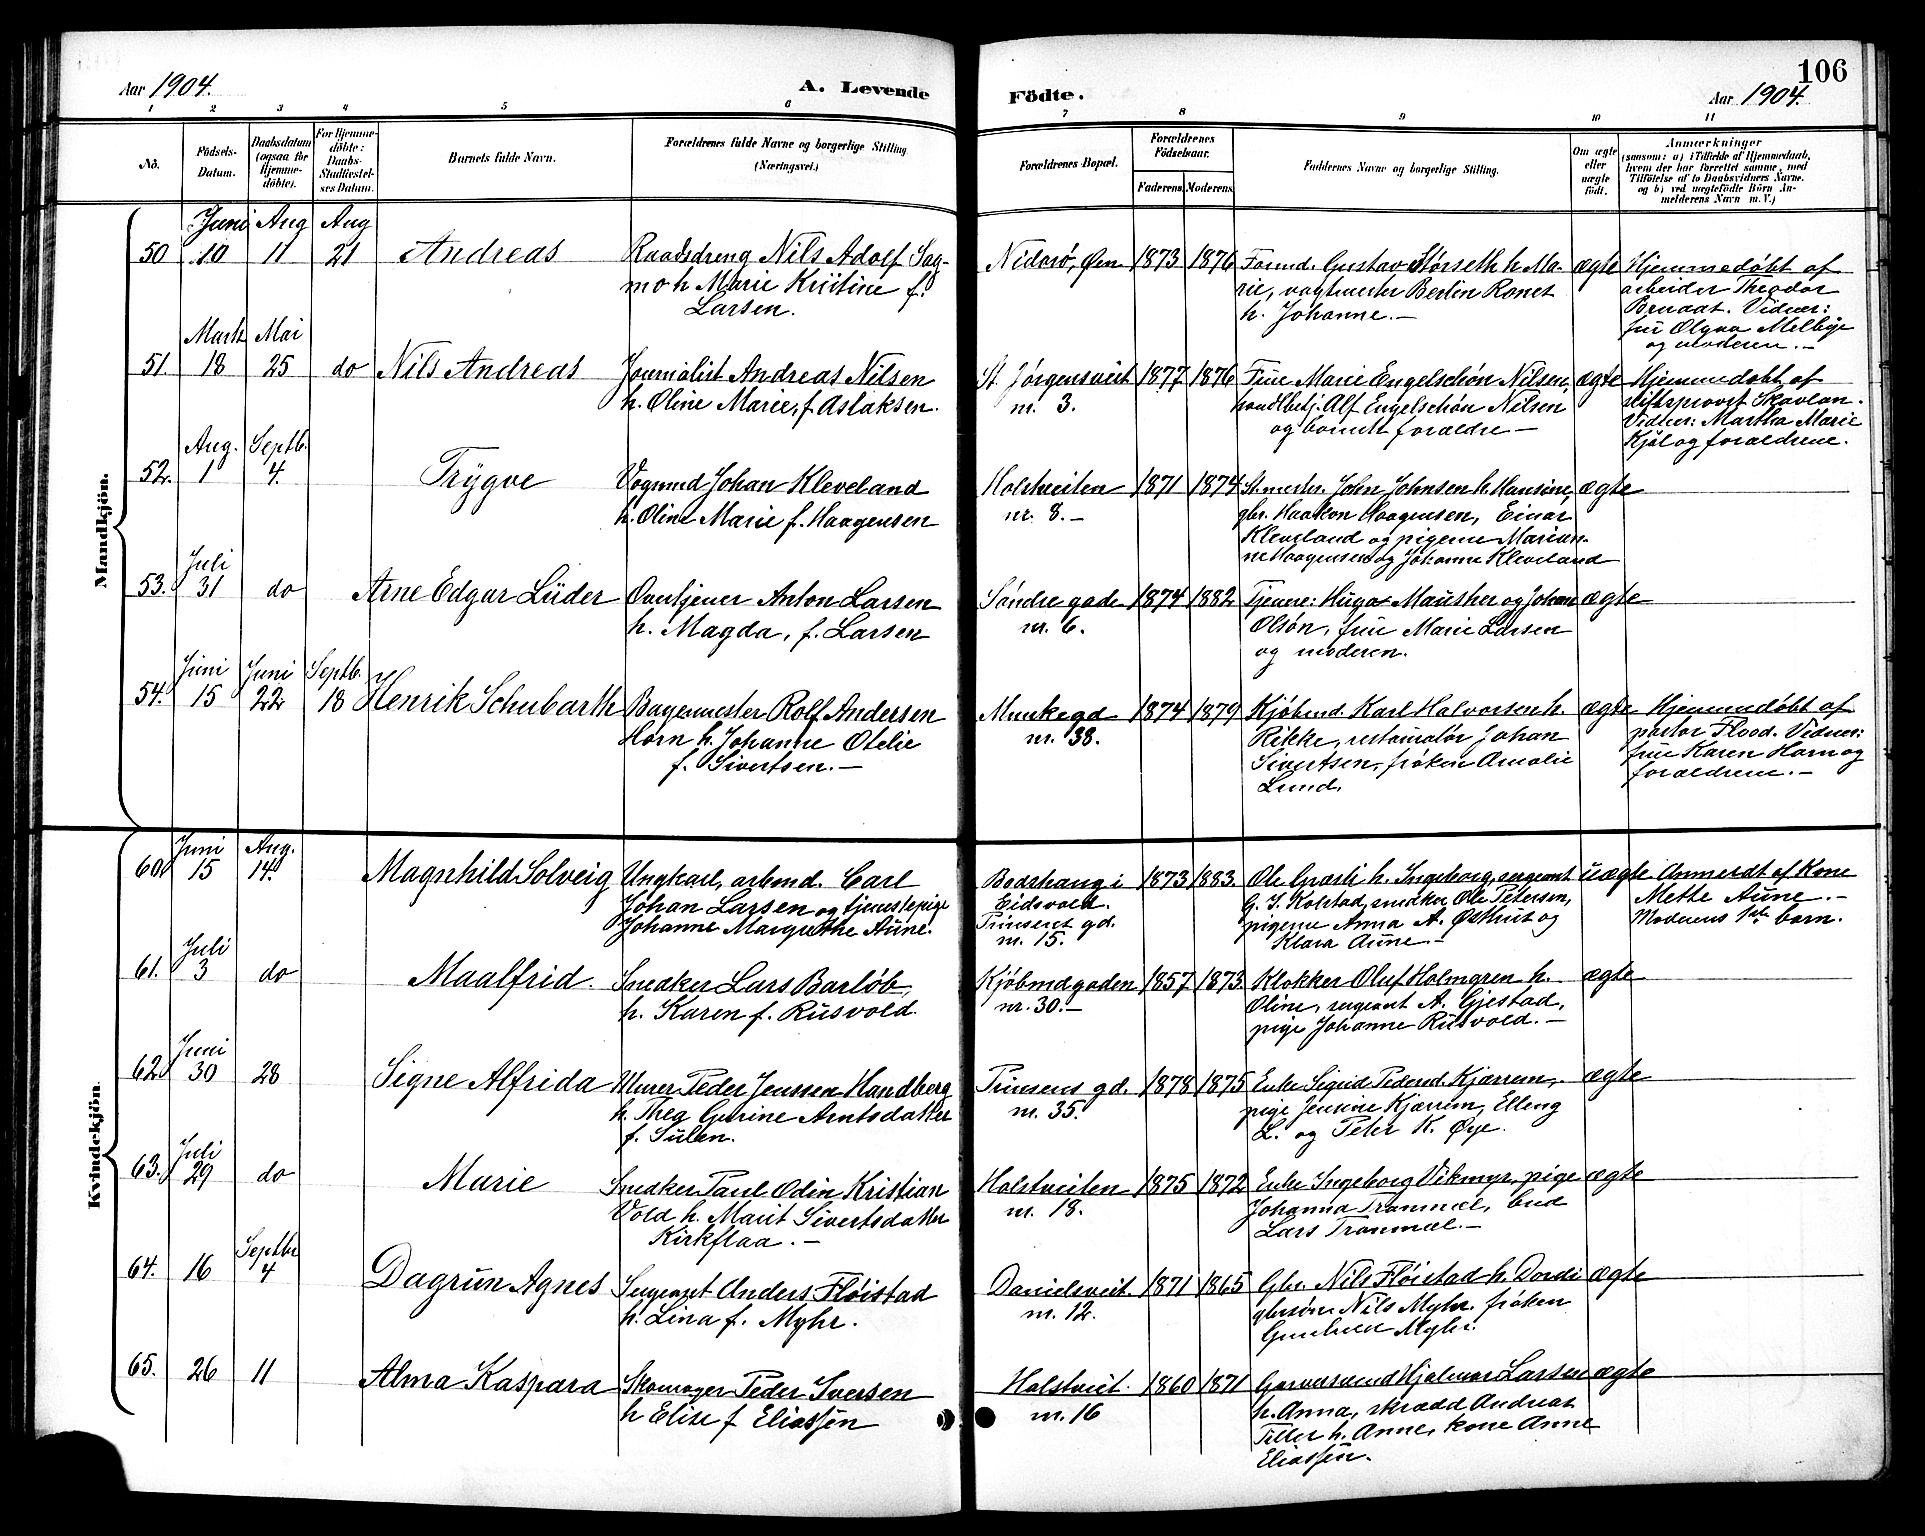 106
Aar 1904.
A. Levende Födte.
Aar 1904.
1 2 3 4 5 6 7 8 9 10 11
No.
Födsels-Datum.
Daabsdatum (ogsaa for Hjemme-döbte).
For Hjemme-döbte: Daabs-Stadfæstel-ses Datum.
Barnets fulde Navn.
Forældrenes fulde Navne og borgerlige Stilling (Næringsvei.)
Forældrenes Bopæl.
Forældrenes Födselsaar.
Faderens. Moderens.
Faddernes Navne og borgerlige Stilling.
Om ægte eller uægte födt.
Anmærkninger
(saasom: a) i Tilfælde af Hjemmedaab,
hvem der har forrettet samme, med
Tilföielse af to Daabsvidners Navne.
og b) ved uægtefödte Börn An-
melderens Navn m. V.)
Mandkjön.
Juni Aug Aug
50 10 11 21 Andreas
Raadsdreng Nils Adolf Sag-
mo h Marie Kristine f.
Larsen.
Nidarø, Øen 1873 1876
Formd. Gustav Størseth h Ma-
rie, vagtmester Berlin Ronet
h. Johanne. —
ægte
Hjemmedøbt af
arbeider Theodor
Bruaat. Vidner:
fru Olgaa Melbye
og moderen. —
Marts Mai
51. 18 25 do Nils Andreas
Journalist Andreas Nilsen
h. Oline Marie, f. Aslaksen.
St Jørgensveit
nr. 3.
1877 1876
Frue Marie Engelschøn Nilsen,
handlbetj. Alf Engelschøn Nilsen
og barnets forældre —
ægte
Hjemmedøbt af
stiftsprovst Skavlan.
Vidner: Martha Marie
Kjøl og forældrene.
Aug. Septb.
52. 1 4. Trygve
Vognmd Johan Kleveland
h. Oline Marie f. Haagensen
Holstveiten
nr. 8. —
1871 1874
St.mester. John Johnsen h. Hansine,
gbr. Haakon Haagensen, Einar
Kleveland og pigerne Marian-
ne Haagensen og Johanne Kleveland
ægte
Juli
53. 31 do Arne Edgar Lüder
Overtjener Anton Larsen
h. Magda, f. Larsen
Søndre gade
nr. 6.
1874 1882
Tjenere: Hugo Mausher og Johan
Olsøn, frue Marie Larsen
og moderen.
ægte
Juni Juni Septb.
54. 15 22 18 Henrik Schubarth
Bagermester Rolf Andersen
Horn h. Johanne Otelie
f. Sivertsen. —
Munkegd
nr. 38.
1874 1879
Kjøbmd. Karl Halvorsen h.
Rikke, restauratør Johan
Sivertsen, frøken Amalie
Lund.
ægte
Hjemmedøbt af
pastor Flood. Vidner:
frue Karen Horn og
forældrene. —
Kvindekjön.
Juni Aug.
60. 15 14. Magnhild Solveig
Ungkarl, arbmd. Carl
Johan Larsen og tjenestepige
Johanne Margrethe Aune.
Bodshaug i
Eidsvold.
Prinsens gd.
nr. 15.
1873 1883.
Ole Græsli h. Ingeborg, sergeant
G. J. Kolstad, snedker Ole Petersen,
pigerne Anna A. Østhus og
Klara Aune —
uægte
Anmeldt af Kone
Mette Aune. —
Moderens 1ste barn.
Juli
61. 3 do Maalfrid.
Snedker Lars Barløb,
h. Karen f. Rusvold.
Kjøbmdgaden
nr. 30. —
1857 1873.
Klokker Oluf Holmgren h.
Oline, sergeant A. Gjestad,
pige Johanne Rusvold. —
ægte
Juni
62. 30 28 Signe Alfrida
Murer Peder Jenssen Handberg
h. Theg Gurine Arntsdatter
f. Sulen.
Prinsens gd.
nr. 35.
1878 1875
Enke Sigrid Pedersd. Kjærrem,
pige Jensine Kjærrem, Elling
L. og Peter K. Øye.
ægte
Juli
63. 29 do Marie
Snedker Paul Odin Kristian
Vold h. Marit Sivertsdatter
Kirkflaa. —
Holstveiten
nr. 18.
1875 1872
Enke Ingeborg Vikmyr, pige
Johanna Trommel, bud
Lars Trommel. —
ægte
Septbr
64. 16 4 Dagrun Agnes
Sergeant Anders Fløistad
h. Lina f. Myhr.
Danielsveit.
nr. 12.
1871 1865
Gbr. Nils Fløistad h. Dordi
gbrsøn. Nils Myhr. frøken
Myhr.
ægte
65. 26 11 Alma Kaspara
Skomager Peder Iversen
h Elise f Eliassen
Holstveit.
nr. 16
1860 1871
Garversvend Hjalmar Larsen
h. Anna, skrædd Andreas
Tiller h. Anne, kone Anne
Eliassen.
ægte